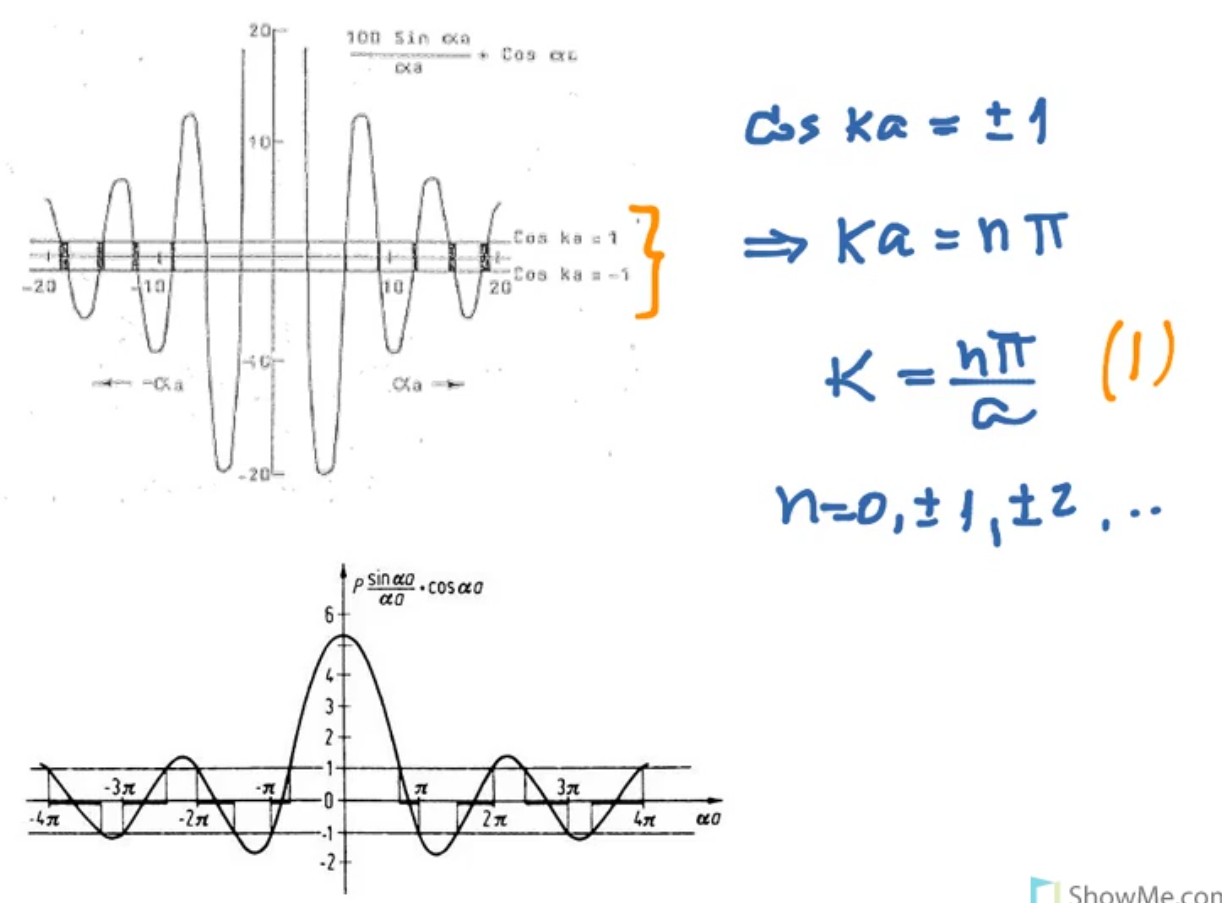 20
100 Sin αa
αa
+ Cos αa
10
Cos ka = 1
Cos ka = -1
-20
-10
10
20
-10
← -αa
αa →
-20
cos ka = ±1
⇒ ka = nπ
K = nπ/a (1)
n=0, ±1, ±2, ..
P sin αa/αa + cos αa
6
4
3
2
1
0
-1
-2
-4π
-3π
-2π
-π
π
2π
3π
4π
αa
ShowMe.com